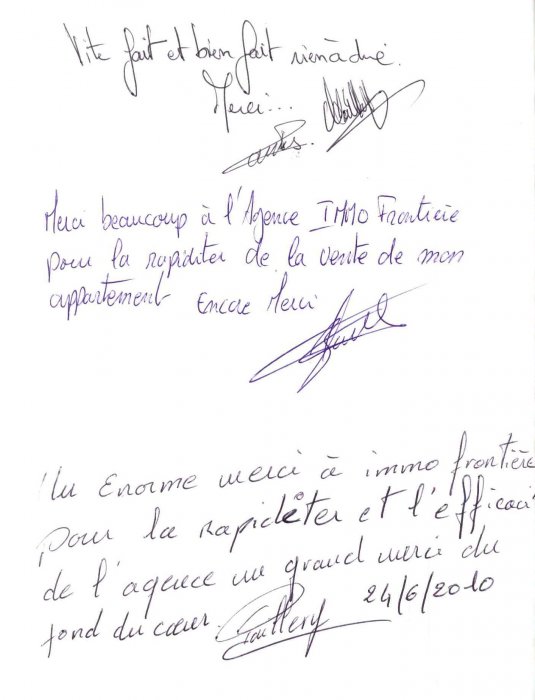 Vite fait et bien fait rien à dire.
Merci...
Merci beaucoup à l'Agence IMMO Frontière
pour la rapiditer de la vente de mon
appartement Encore Merci
Un Enorme merci à immo frontière
pour la rapidêter et l'efficaci
de l'agence un grand merci du
fond du cœur. 24/6/2010